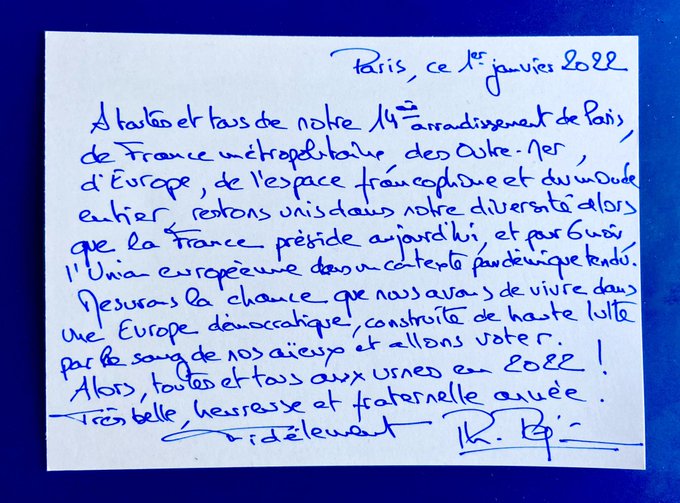 Paris, ce 1er janvier 2022
A toutes et tous de notre 14ème arrondissement de Paris,
de France métropolitaine, des Outre-Mer,
d'Europe, de l'espace francophone et du monde
entier, restons unis dans notre diversité alors
que la France préside aujourd'hui, et pour 6 mois,
l'Union européenne dans un contexte pandémique tendu.
Mesurons la chance que nous avons de vivre dans
une Europe démocratique, construite de haute lutte
par le sang de nos aïeux et allons voter.
Alors, toutes et tous aux urnes en 2022 !
Très belle, heureuse et fraternelle année.
Fidèlement